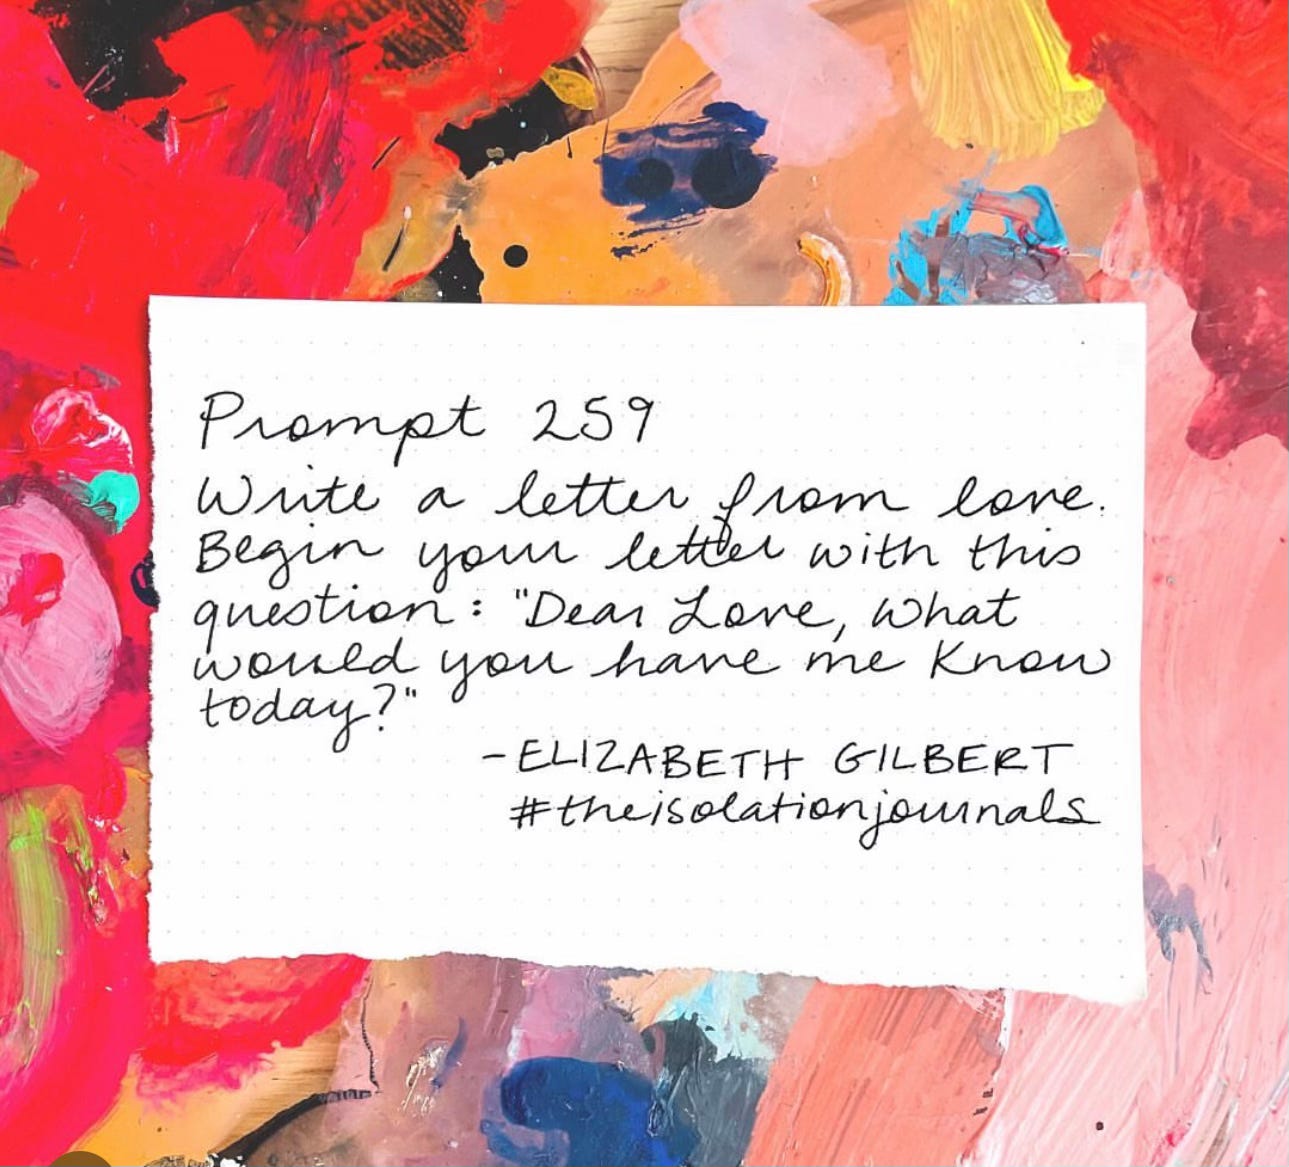 Prompt 259
Write a letter from love.
Begin your letter with this
question: "Dear Love, what
would you have me know
today?"
-ELIZABETH GILBERT
#theisolationjournals